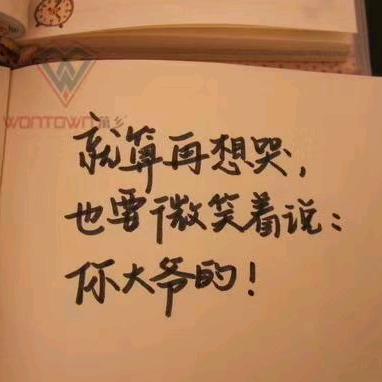 WONTOWN商乡
就算再想哭，
也要微笑着说：
你大爷的！